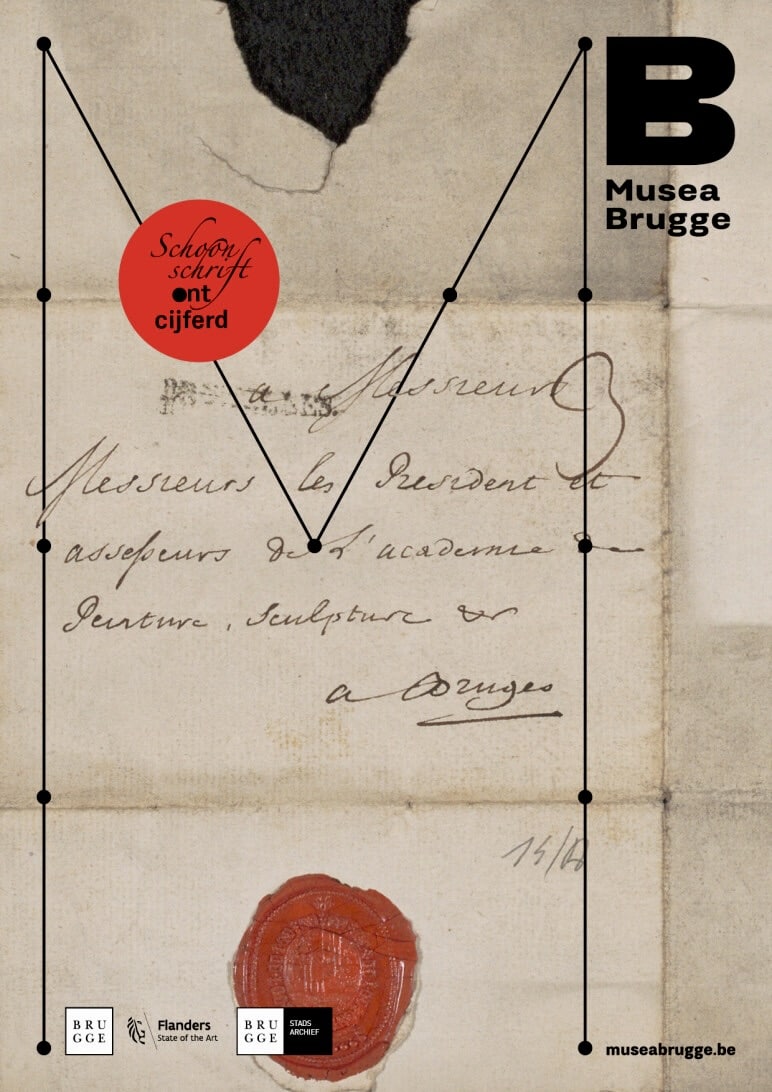 B
Musea
Brugge
Schoon
schrift
ont
cijferd
a Messieurs
Messieurs les President et
assesseurs de L'academie de
Peinture, sculpture &r
a Bruges
BRU
GGE
Flanders
State of the Art
BRU
GGE
STADS
ARCHIEF
museabrugge.be